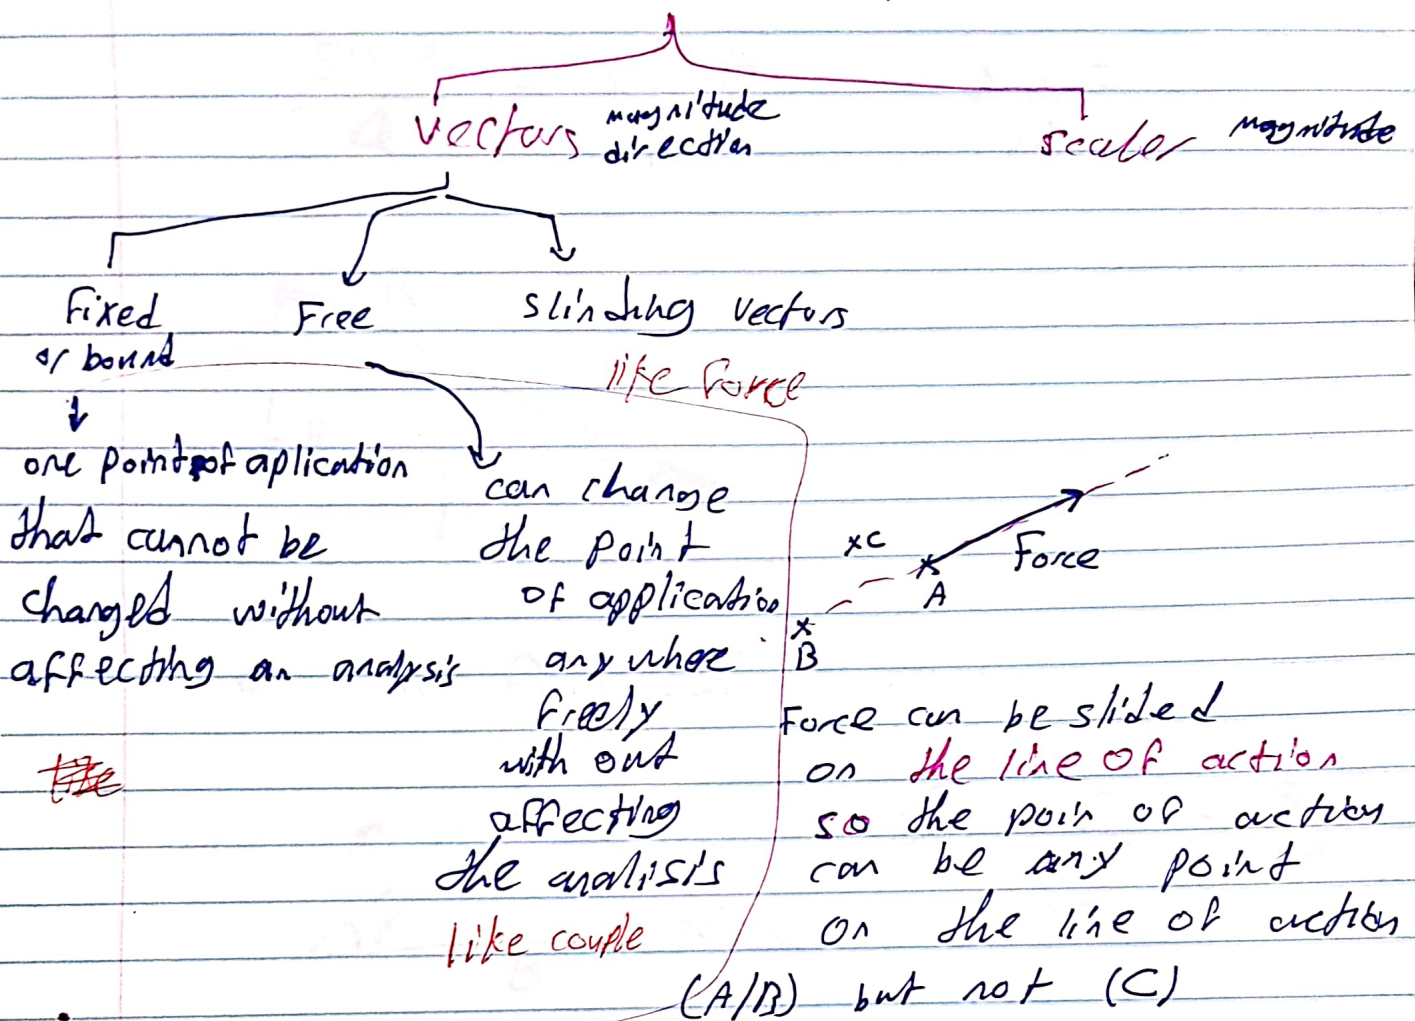 vectors magnitude
direction
scaler magnitude
Fixed
or bound
Free
slinding vectors
like force
one point of aplication
that cannot be
changed without
affecting an analysis
can change
the point
of application
anywhere
freely
with out
affecting
the analisis
like couple
xC
A
Force
B
Force can be slided
on the line of action
so the poin of action
can be any point
on the line of action
(A/B) but not (C)